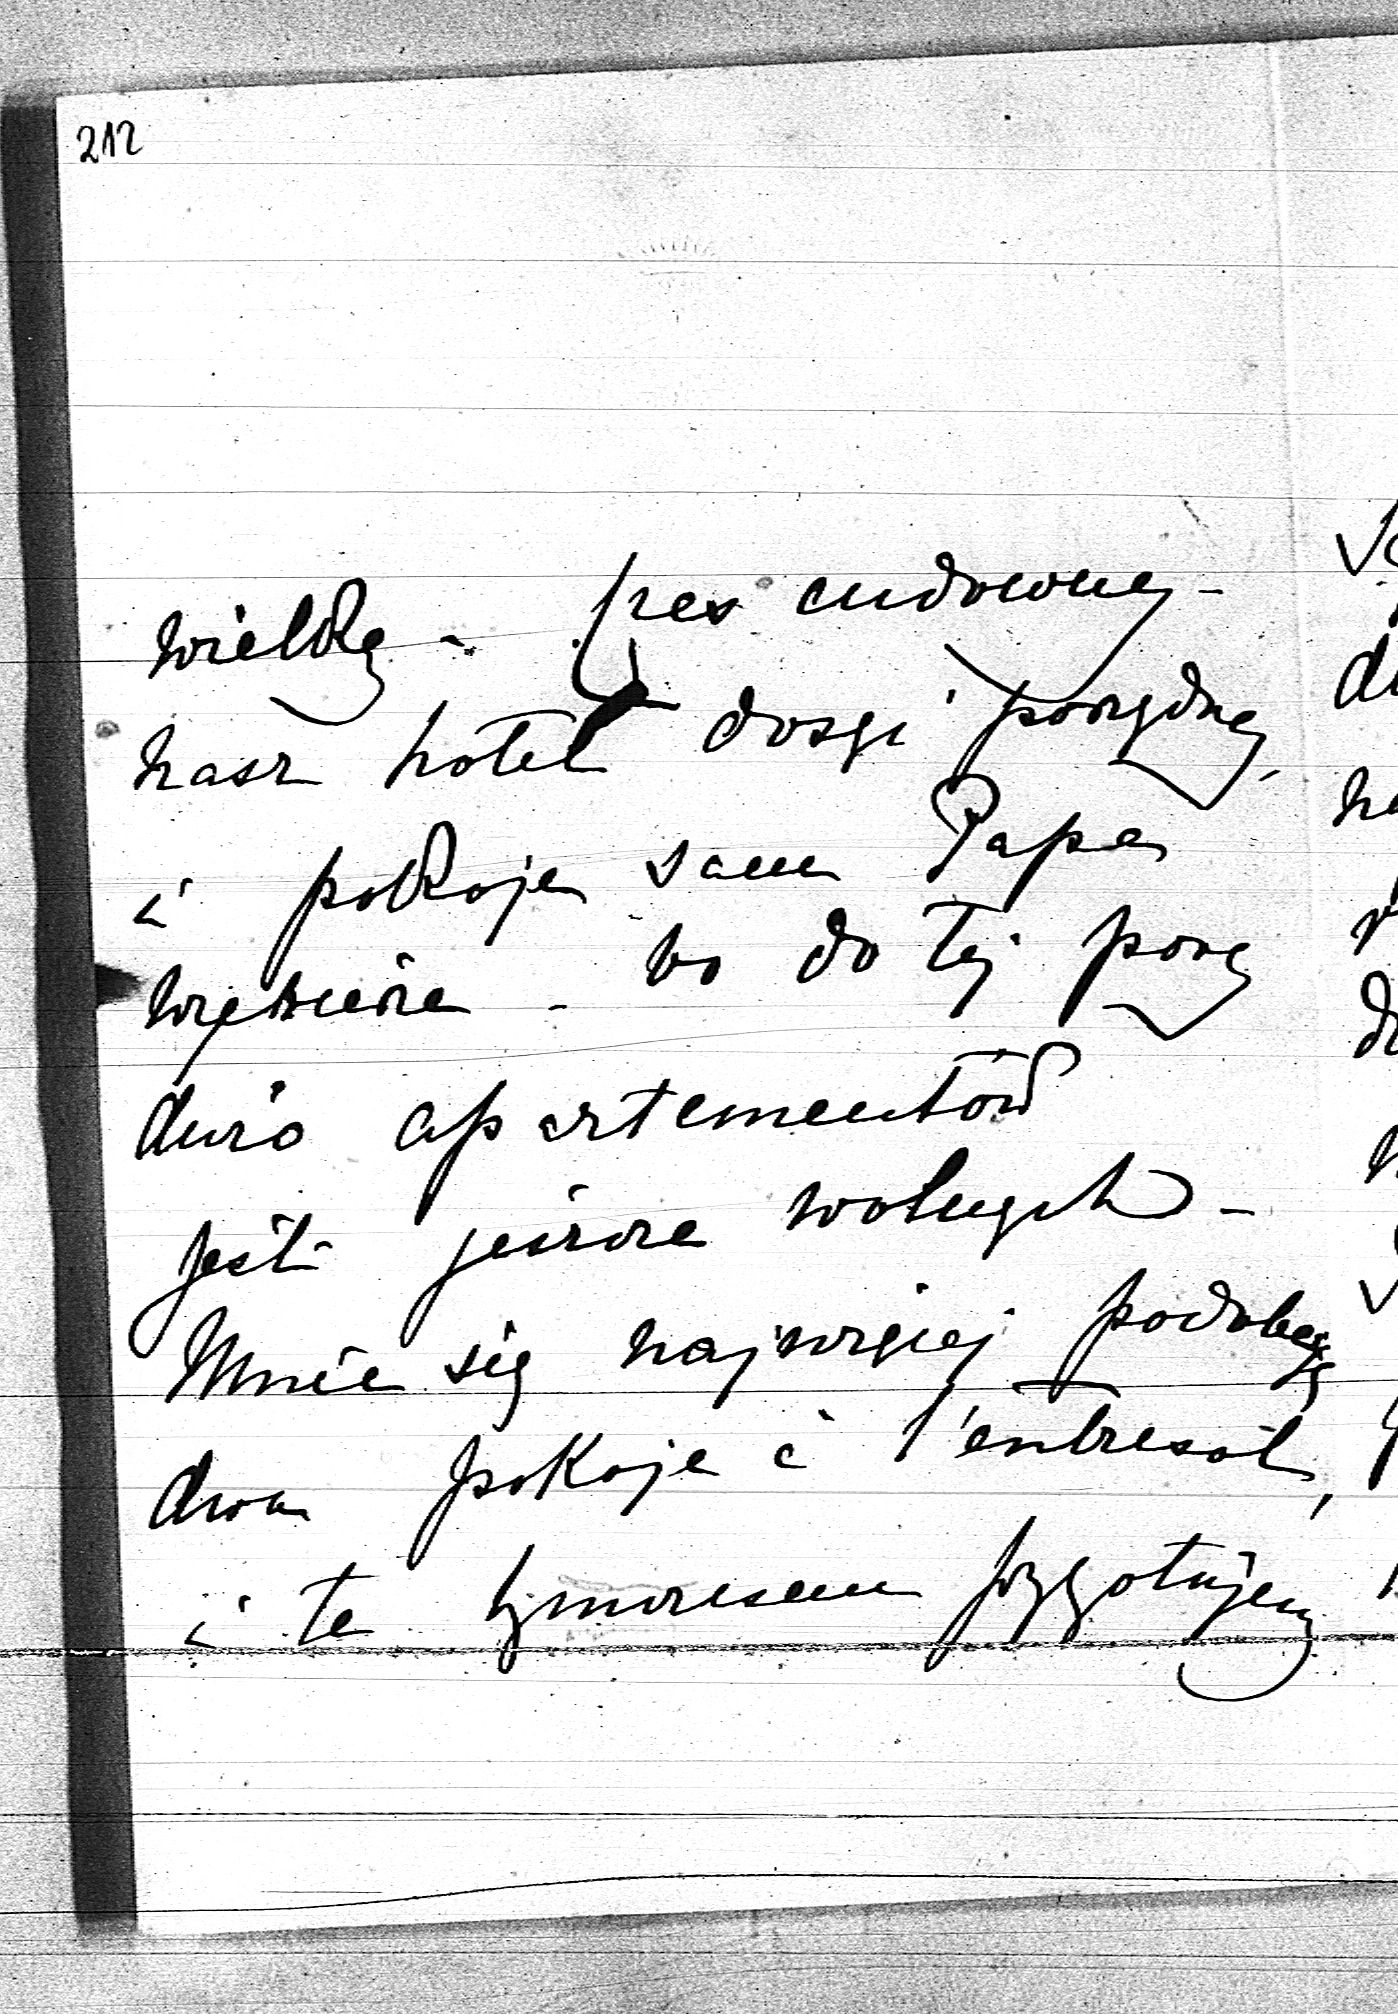 212
wielką - przez cudowny -
nasz hotel dosyć porządny,
i pokoje sam Papa
weźmie - bo do tej pory
dużo apartementów
jest jeszcze wolnych -
Mnie się najwięcej podobają
dwa pokoje à l'entresol,
i te tymczasem przygotujemy